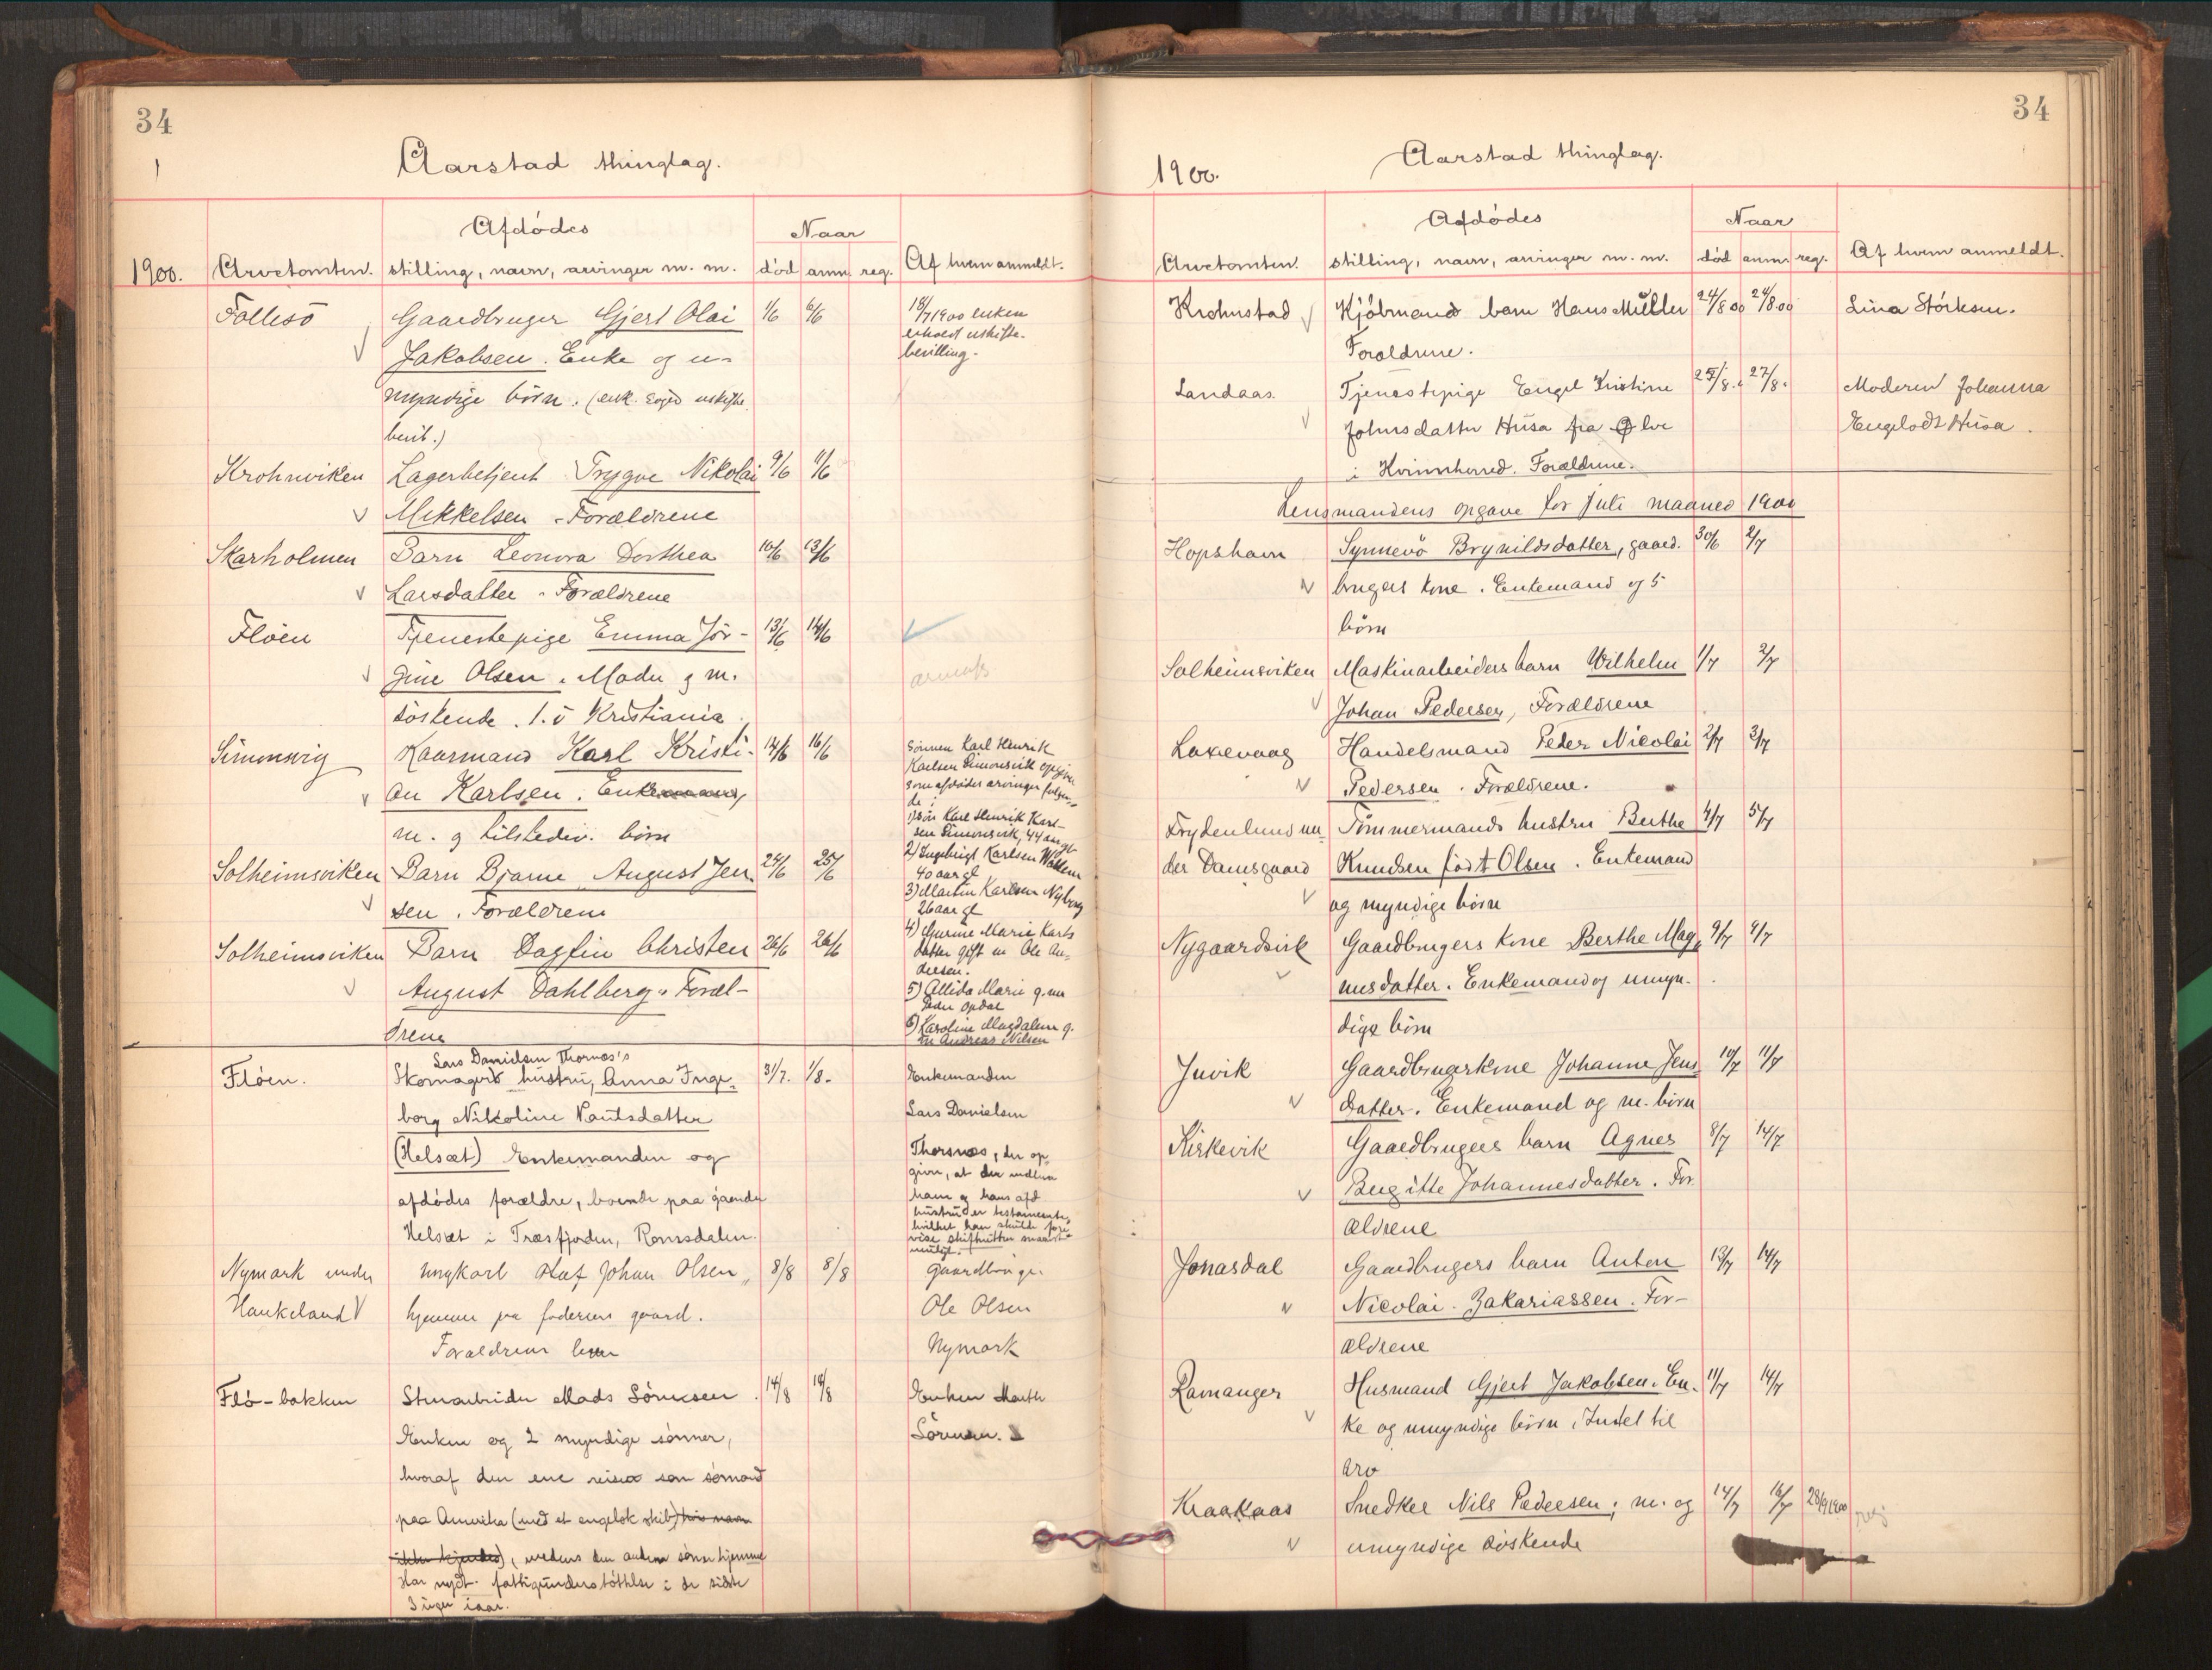 34
Aarstad thinglag.
Afdödes
Naar
1900.
Arvetomten.
stilling, navn, arvinger m. m.
död
anm.
reg.
Af hvem anmeldt.
Follesö
Gaardbruger Gjert Olai
1/6
6/6
18/7 1900 enken
Jakobsen. Enke og u-
erholdt uskifte-
bevilling.
myndige börn. (enk. söger uskifte
bevil.)
Krohnviken
Lagerbetjent Trygve Nikolai
9/6
11/6
Mikkelsen - Forældrene
Skarholmen
Barn Leonora Dorthea
10/6
13/6
Larsdatter - Forældrene
Flöen
Tjenestepige Emma Jör-
13/6
14/6
gine Olsen. Moder g m.
söskende. 1. i Kristiania
Simonsvig
Kaarmand Karl Kristi-
14/6
16/6
an Karlsen. Enkemand,
m. g tilstedev. börn
Sönnen Karl Henrik
Karlsen Simonsvik opgiver
som afdödes arvinger følgen-
de:
1) Sön Karl Henrik Karl-
sen Simonsvik, 44 aar gl
2) Ingebrigt Karlsen
40 aar gl
3) Martin Karlsen Nyborg
26 aar gl
4) Gurine Marie Karls
datter gift m Ole An-
dersen.
5) Allida Marie g. m
Peder Opdal
6) Karoline Magdalene g.
m Andreas Nilsen
Solheimsviken
Barn Bjarne August Jen-
24/6
25/6
sen. Forældrene
Solheimsviken
Barn Dagfin Christen
26/6
26/6
August Dahlberg. Foræl-
drene
Flöen.
Lars Danielsen Thornæs's
Skomagers hustru, Anna Inge-
31/7.
1/8.
Enkemanden
borg Nikoline Knutsdatter
Lars Danielsen
(Helsæt) Enkemanden og
Thorsnæs, der op-
giver, at der mellem
afdödes forældre, boende paa gaarden
ham og hans afd.
hustru er testamente,
Helsæt i Træsfjorden, Romsdalen.
hvilket han skulde fore
vise skifteretten snarest
muligt.
Nymark under
ungkarl Olaf Johan Olsen,
8/8
8/8
gaardbruger
Haukeland
hjemme paa faderens gaard.
Ole Olsen
Forældrene lever
Nymark
Flö-bakken
Stenarbeider Mads Sörensen.
14/8
14/8
Enken Marthe
Enken og 2 myndige sönner,
Sörensen.
hvoraf den ene reiser som sömand
paa Amerika (med et engelsk skib) hvis navn
ikke kjendes), medens den anden sönn hjemme
Har nydt fattigunderstöttelse i de sidste
3 uger iaar.
34
Aarstad thinglag.
1900.
Afdödes
Naar
Arvetomten.
stilling, navn, arvinger m. m.
död
anm.
reg.
Af hvem anmeldt.
Krohnstad
Kjöbmand barn Hans Müller
24/8 00
24/8 00
Lina Störksen.
Foraldrene.
Landaas.
Tjenestepige Engel Kristine
25/8.
27/8.
Moderen Johanna
Johnsdatter Husa fra Ølve
Engelsdt Husa.
i Kvinnherred. Forældrene.
Lensmandens opgave for juli maaned 1900
Hopshavn
Synnevö Brynildsdatter, gaard-
30/6
2/7
brugers kone. Enkemand og 5
börn
Solheimsviken
Maskinarbeiders barn Wilhelm
1/7
2/7
Johan Pedersen, Forældrene
Laxevaag
Handelsmand Peder Nicolai
2/7
3/7
Pedersen. Forældrene.
Frydenlund un-
Tömmermands hustru Berthe
4/7
5/7
der Damsgaard
Knudsen födt Olsen. Enkemand
og myndige börn
Nygaardsvik
Gaardbrugers kone Berthe Mag-
9/7
9/7
nusdatter. Enkemand og umyn-
dige börn
Juvik
Gaardbrugerkone Johanne Jens
10/7
11/7
datter. Enkemand og m. börn
Kirkevik
Gaardbrugers barn Agnes
8/7
14/7
Birgitte Johannesdatter. For-
ældrene
Jonasdal
Gaardbrugers barn Anton
13/7
14/7
Nicolai Zakariassen. For-
ældrene
Ramanger
Husmand Gjert Jakobsen. En-
11/7
14/7
ke og umyndige börn. Intet til
arv
Kraakaas
Snedker Nils Pedersen; m. og
14/7
16/7
28/9 1900
umyndige söskende